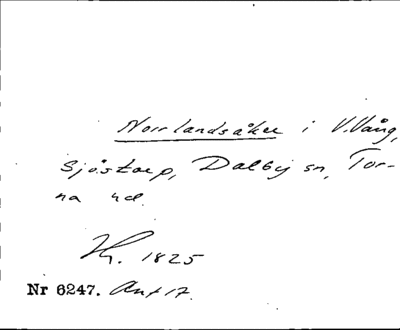 Norrlandsåker i V. Vång,
Sjöstorp, Dalby sn, Tor-
na hd.
Hy. 1825
Nr 6247. Ant 17.